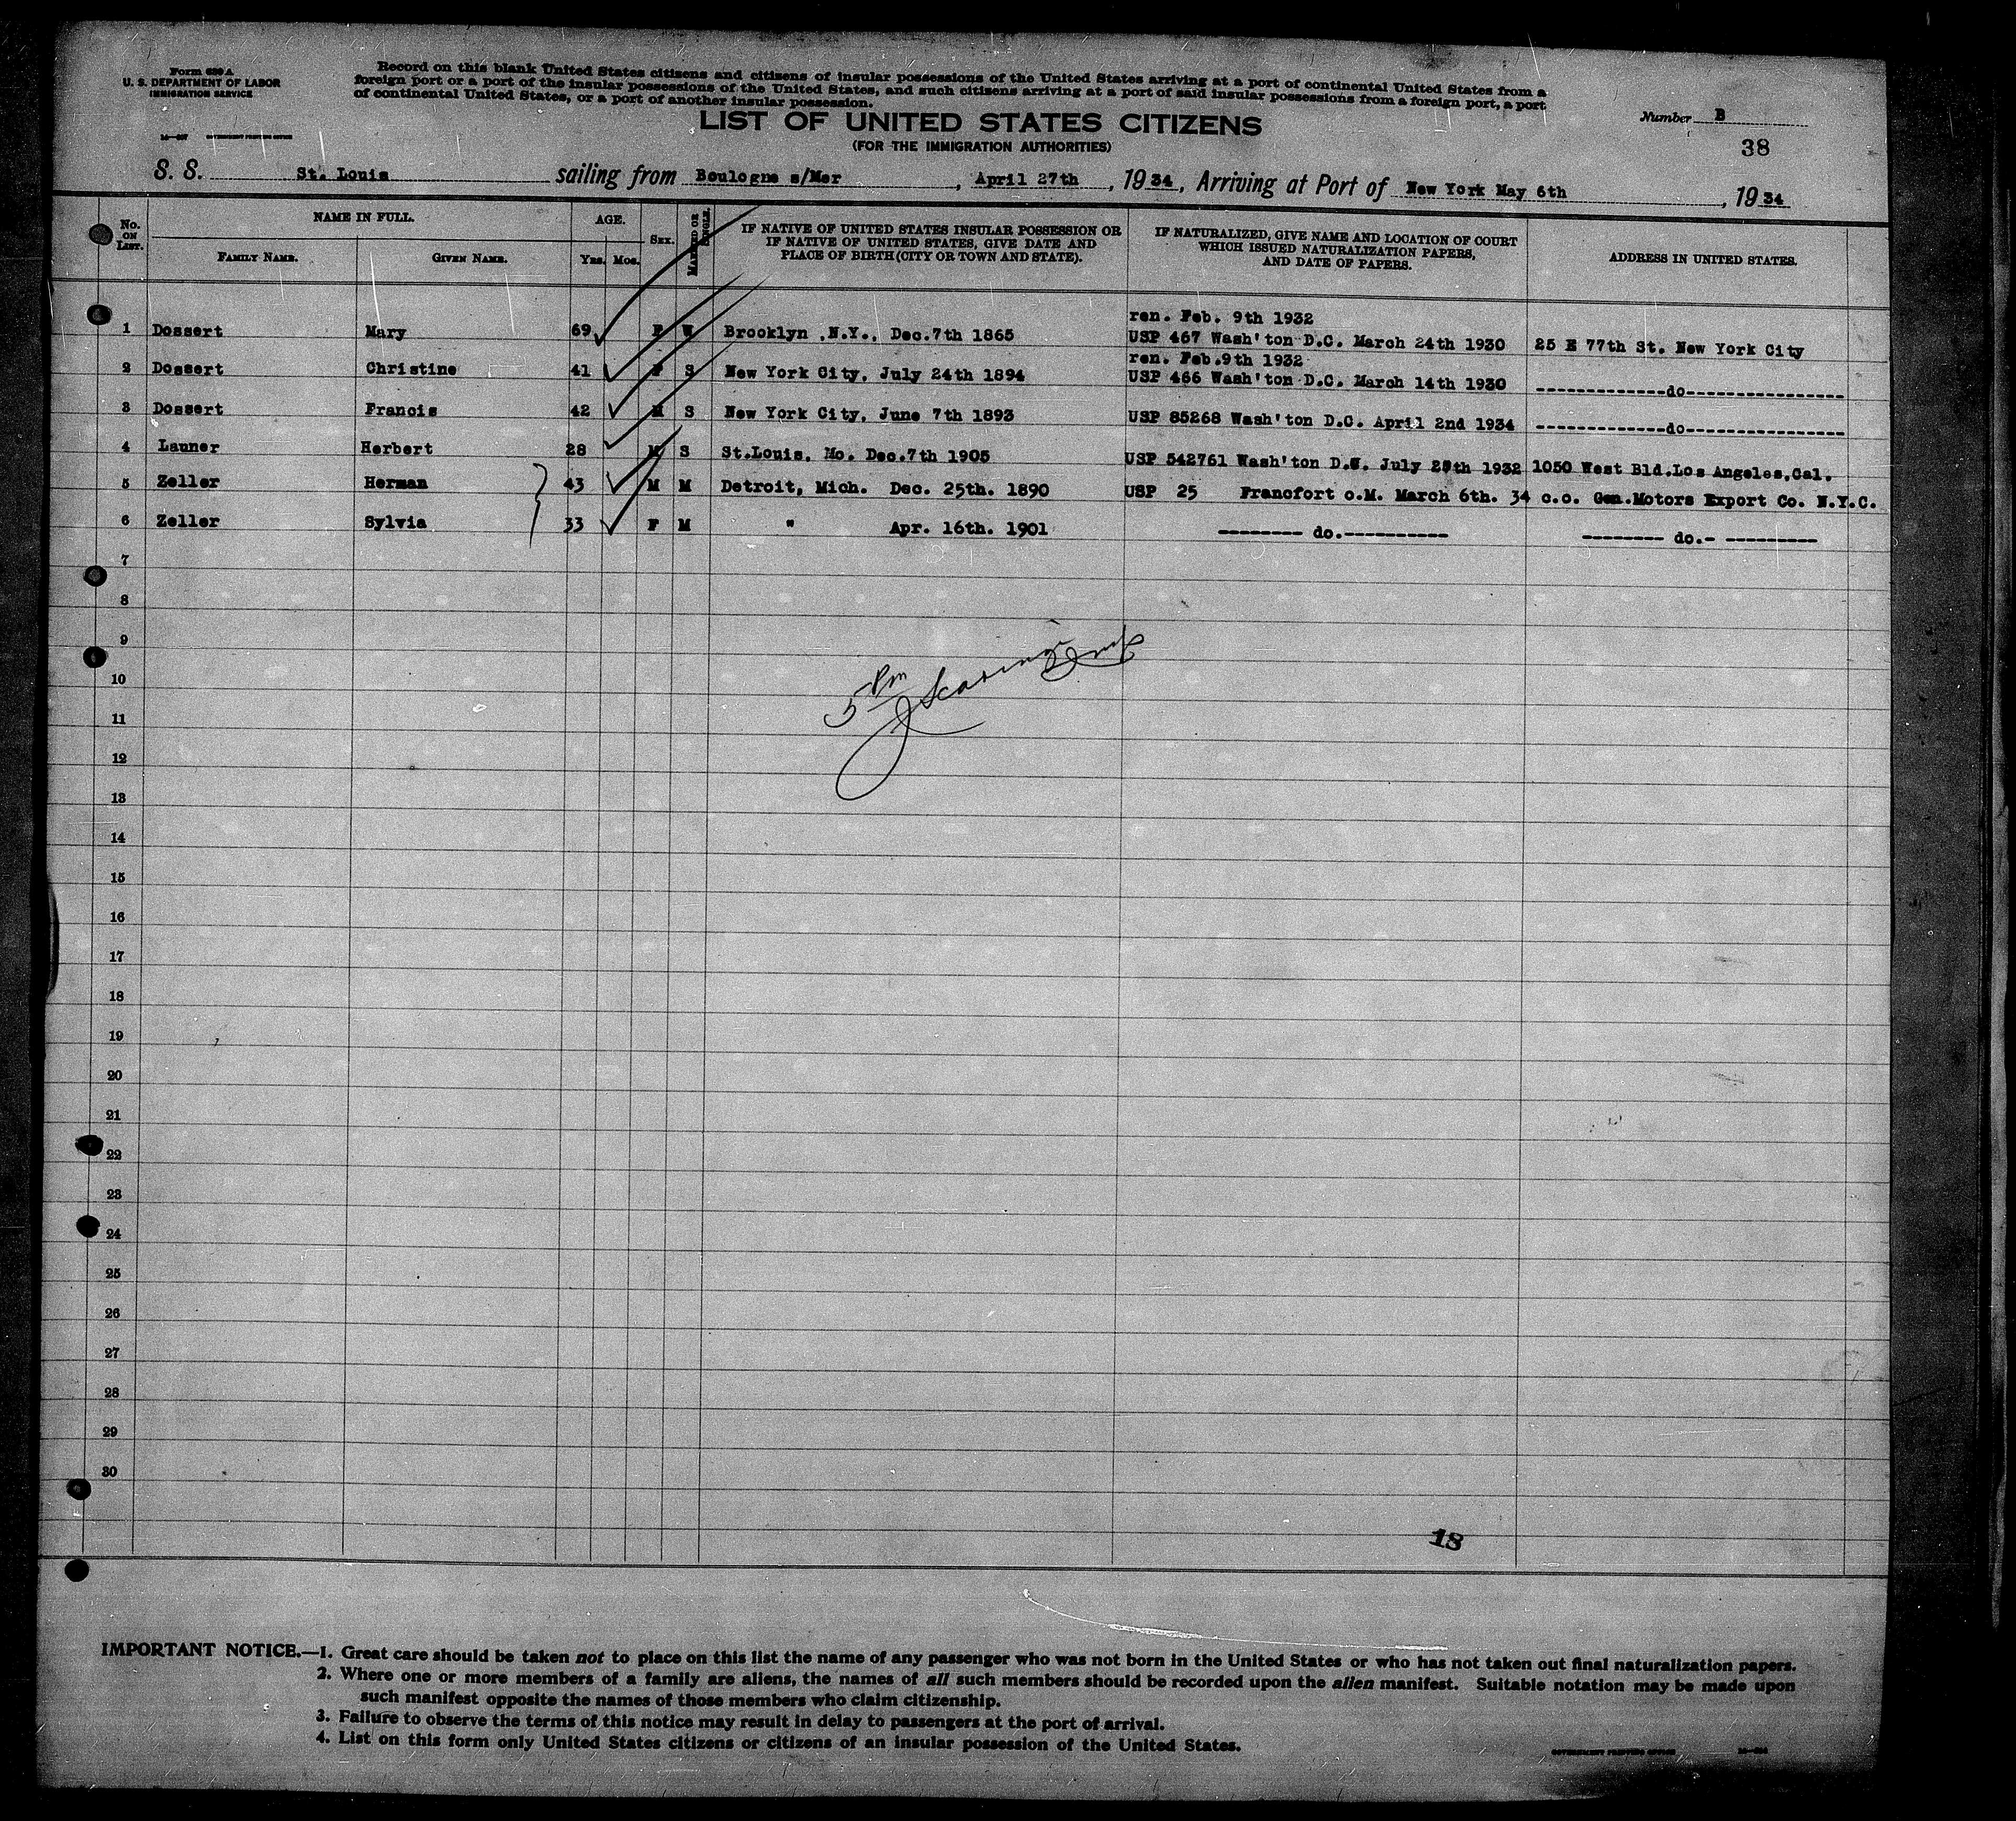 Form 630 A
U. S. DEPARTMENT OF LABOR
IMMIGRATION SERVICE
Record on this blank United States citizens and citizens of insular possessions of the United States arriving at a port of continental United States from a
foreign port or a port of the insular possessions of the United States, and such citizens arriving at a port of said insular possessions from a foreign port, a port
of continental United States, or a port of another insular possession.
LIST OF UNITED STATES CITIZENS
(FOR THE IMMIGRATION AUTHORITIES)
Number B
38
GOVERNMENT PRINTING OFFICE
S. S. St. Louis sailing from Boulogne s/Mer, April 27th, 1934, Arriving at Port of New York May 6th, 1934
No. ON LIST. NAME IN FULL. AGE. SEX. MARRIED OR SINGLE. IF NATIVE OF UNITED STATES INSULAR POSSESSION OR IF NATIVE OF UNITED STATES, GIVE DATE AND PLACE OF BIRTH (CITY OR TOWN AND STATE). IF NATURALIZED, GIVE NAME AND LOCATION OF COURT WHICH ISSUED NATURALIZATION PAPERS, AND DATE OF PAPERS. ADDRESS IN UNITED STATES.
FAMILY NAME. GIVEN NAME. Yrs. Mos.
ren. Feb. 9th 1932
1 Dossert Mary 69 F W Brooklyn ,N.Y., Dec.7th 1865 USP 467 Wash'ton D.C. March 24th 1930 25 E 77th St. New York City
ren. Feb.9th 1932
2 Dossert Christine 41 F S New York City, July 24th 1894 USP 466 Wash'ton D.C. March 14th 1930 -------------do----------------
3 Dossert Francis 42 M S New York City, June 7th 1893 USP 85268 Wash'ton D.C. April 2nd 1934 -------------do----------------
4 Lanner Herbert 28 M S St.Louis, Mo. Dec.7th 1905 USP 542761 Wash'ton July 1932 1050 West Bld.Los Angeles,Cal.
5 Zeller Herman 43 M M Detroit, Mich. Dec. 25th. 1890 USP 25 Francfort o.M. March 6th. 34 c.o. Gen.Motors Export Co. N.Y.C.
6 Zeller Sylvia 33 F M " Apr. 16th. 1901 -------- do.---------- -------- do.- ---------
7
8
9
10
5 Pm
11
12
13
14
15
16
17
18
19
20
21
22
23
24
25
26
27
28
29
30
18
IMPORTANT NOTICE.—1. Great care should be taken not to place on this list the name of any passenger who was not born in the United States or who has not taken out final naturalization papers.
2. Where one or more members of a family are aliens, the names of all such members should be recorded upon the alien manifest. Suitable notation may be made upon
such manifest opposite the names of those members who claim citizenship.
3. Failure to observe the terms of this notice may result in delay to passengers at the port of arrival.
4. List on this form only United States citizens or citizens of an insular possession of the United States.
GOVERNMENT PRINTING OFFICE